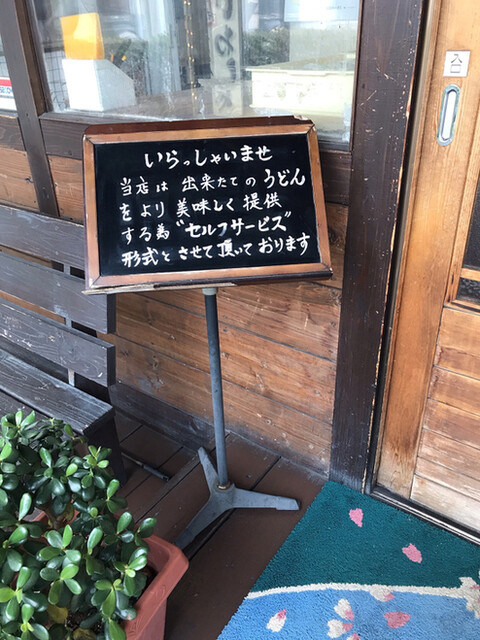 いらっしゃいませ
当店は出来たてのうどん
をより美味しく提供
する為"セルフサービス"
形式とさせて頂いております